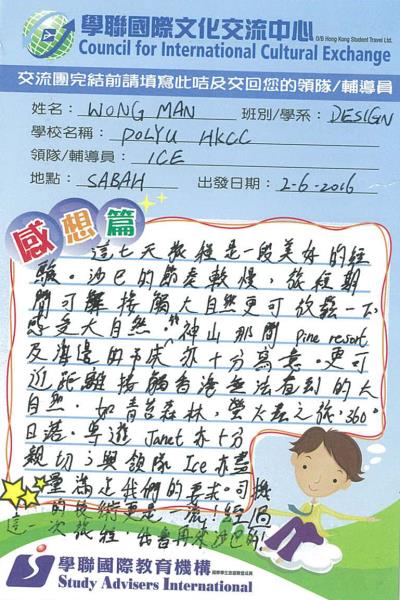 學聯國際文化交流中心
D/B Hong Kong Student Travel Ltd.
Council for International Cultural Exchange
交流團完結前請填寫此咭及交回您的領隊/輔導員
姓名： WONG MAN 班別/學系： DESIGN
學校名稱： POLYU HKCC
領隊/輔導員： ICE
地點： SABAH 出發日期： 2-6-2016
感想篇
這七天旅程是一段美好的經
驗。沙巴的節奏較慢，旅程期
間可接觸大自然更可放鬆一下
感受大自然。神山那間 Pine resort
及海邊的日落亦十分寫意。更可
近距離接觸香港無法看到的大
自然，如青苔森林，螢火蟲之旅，360°
日落。導遊 Janet 亦十分
親切，與領隊 Ice 亦盡
量滿足我們的要求。司機
的技術更是一流！經過
這一次旅程，我會再來沙巴的！
學聯國際教育機構
Study Advisers International